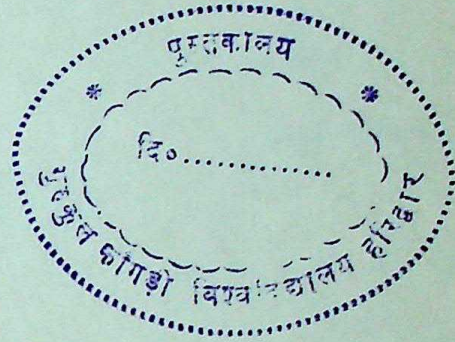 पुस्तकालय
दि०..............
गुरुकुल कांगड़ी विश्वविद्यालय हरिद्वार